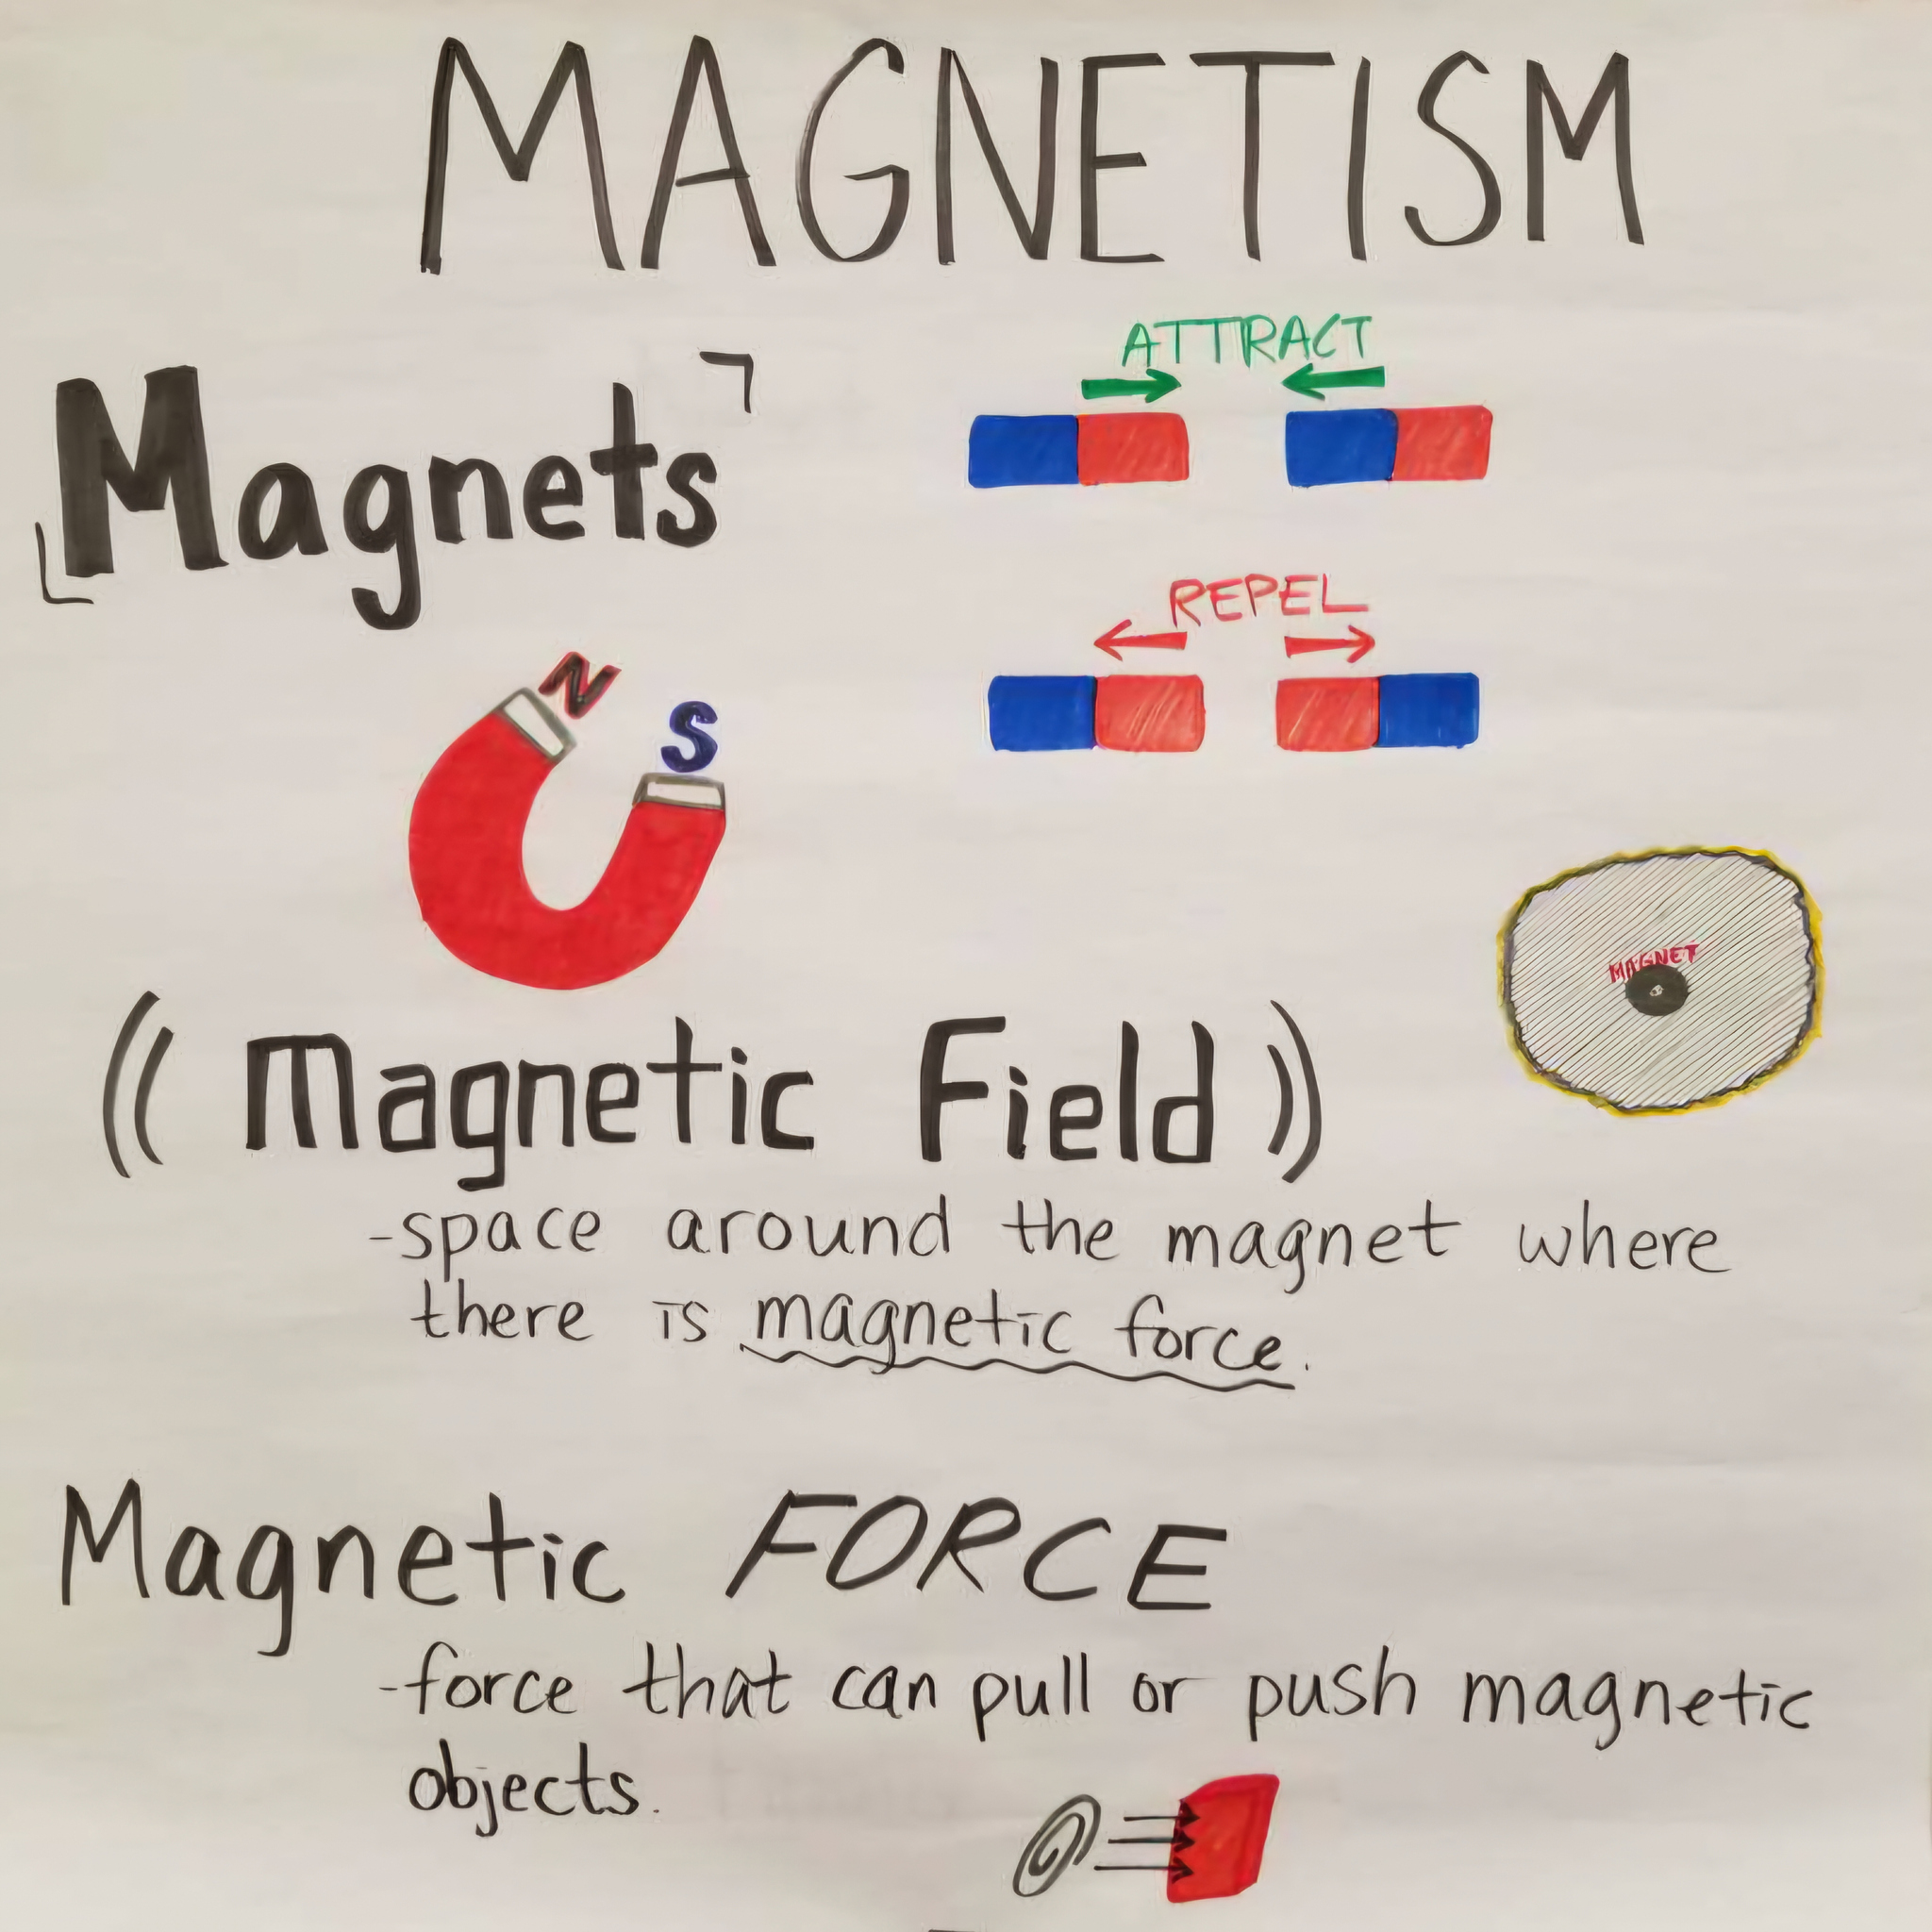 MAGNETISM
Magnets
ATTRACT
REPEL
N
S
MAGNET
Magnetic Field
-space around the magnet where
there is magnetic force.
Magnetic FORCE
-force that can pull or push magnetic
objects.